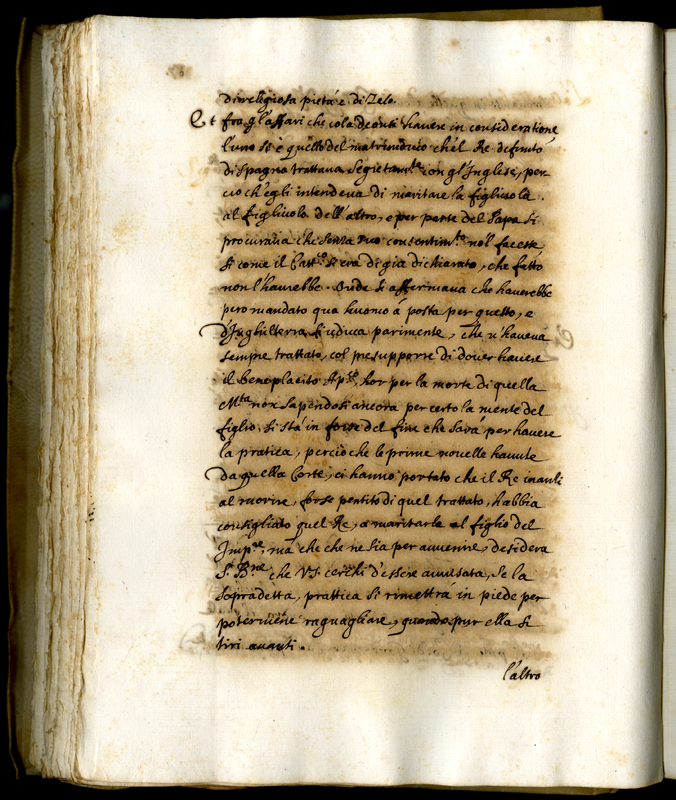 di religiosa pietà e di Zelo.
Et fra gl'affari che colà deonti havere in consideratione
l'uno si è quello del matrimonio ch'el Re defunto
di Spagna trattava segretam.te con gl'Inglese, per
ciò ch'egli intendeva di maritare la figliuola
al figliuolo dell'altro, e per parte del Papa si
procurava che senza suo consentim.to nol facesse
si come il Catt.co si era di già dichiarato, che fatto
non l'haurebbe. Onde si affermava che haverebbe
però mandato qua huomo à posta per questo, e
d'Inghilterra si udiva parimente, che n'haveva
sempre trattato, col presupporre di dover havere
il beneplacito Ap.co, hor per la morte di quella
M.tà non sapendosi ancora per certo la mente del
figlio, si stà in forse del fine che sarà per havere
la pratica, perciò che le prime novelle havute
da quella Corte, ci hanno portato che il Re inanti
al morire, forse pentito di quel trattato, habbia
consigliato quel Re, a maritarle al figlio del
Imp.re, ma che che ne sia per avvenire, desidera
S. B.ne che V.S. cerchi d'essere avvisata, se la
sopradetta, prattica si rimettrà in piede per
potermene raguagliare, quando pur ella si
tiri avanti.
l'altro